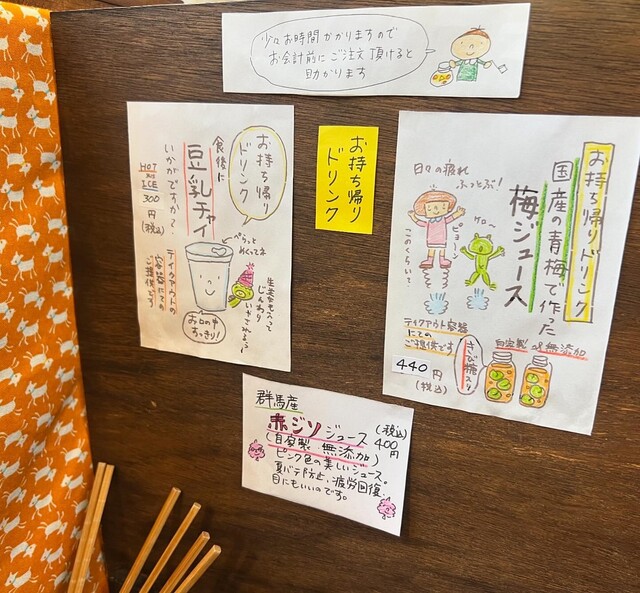 少々お時間かかりますので
お会計前にご注文頂けると
助かります
お持ち帰り
ドリンク
食後に
豆乳チャイ
いかがですか?
HOT
ICE
300
円
(税込)
ぺらっと
めくってネ
じんわり
お口の中
すっきり!
テイクアウトの
容器にての
ご提供です
お持ち帰り
ドリンク
お持ち帰りドリンク
国産の青梅で作った
梅ジュース
日々の疲れ
ふっとぶ!
ピョーン
ケロ〜
このくらいて
テイクアウト容器
にての
ご提供です
440円
(税込)
きび糖入り
自家製 or 無添加
群馬産
赤ジソジュース
(税込)
400
円
(自家製 無添加)
ピンク色の美しいジュース。
夏バテ防止、疲労回復、
目にもいいのです。